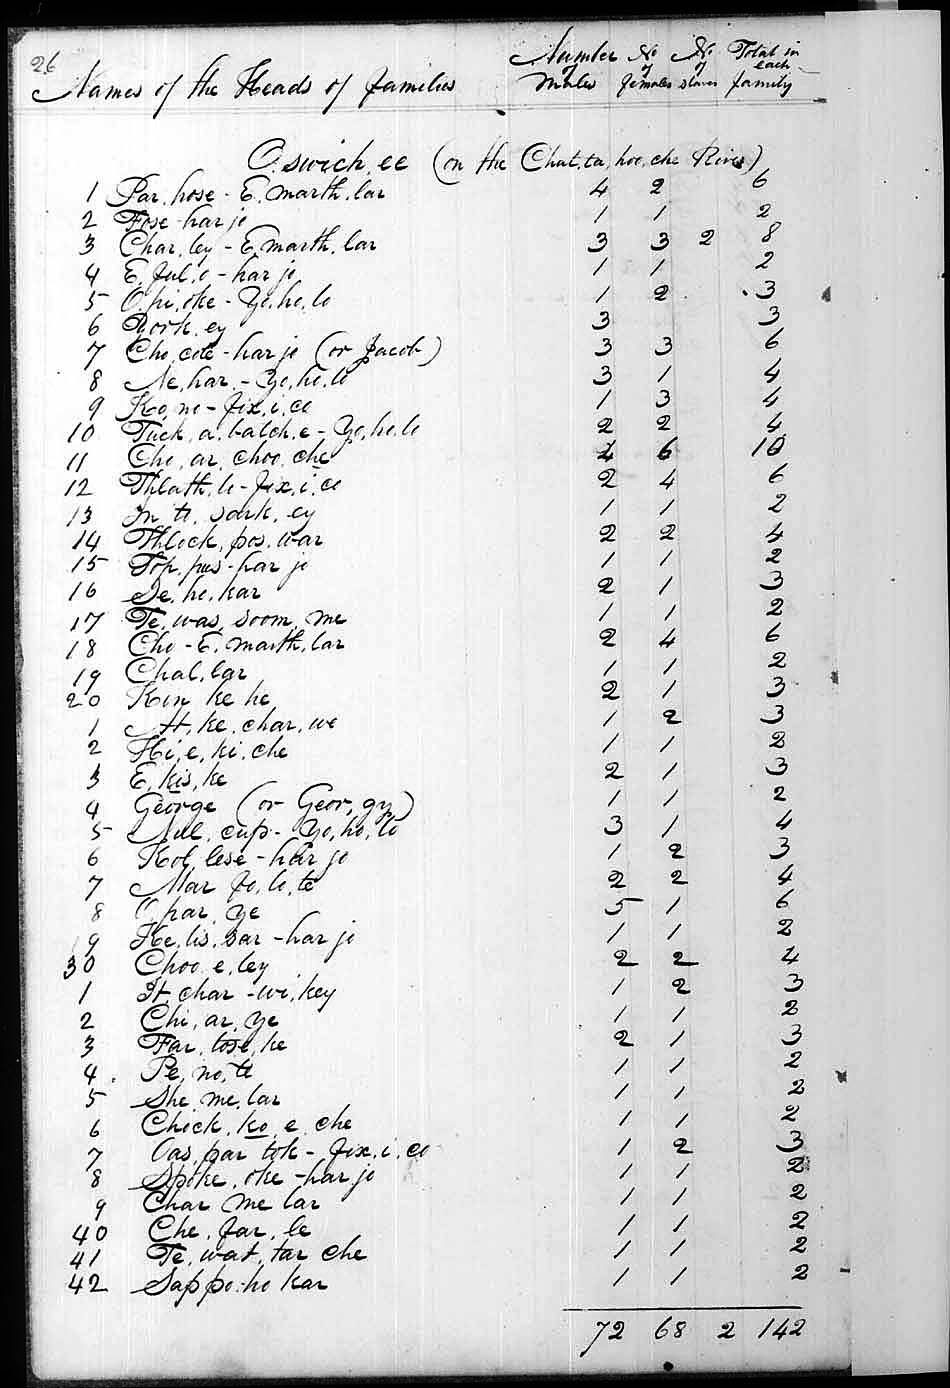 26
Names of the Heads of families Number of Males No of females No of slaves Total in each family
O.swich.ee (on the Chat.ta.hoo.che River)
1 Par.hose - E.marth.lar 4 2 6
2 Fose-har jo 1 1 2
3 Char.ley - E.marth.lar 3 3 2 8
4 E.ful.o - har jo 1 1 2
5 O.pi.oke - Yo.ho.lo 1 2 3
6 York.ey 3 3
7 Cho.cote - har jo (or Jacob) 3 3 6
8 Ne.har. - Yo.ho.lo 3 1 4
9 Ko.no - fix.i.co 1 3 4
10 Tuck.a.batch.e - Yo.ho.lo 2 2 4
11 Cho.ar.choo.che 4 6 10
12 Thlath.lo - fix.i.co 2 4 6
13 In.to.sark.ey 1 1 2
14 Thlock.pos.war 2 2 4
15 Fop.pus-har jo 1 1 2
16 Se.ho.kar 2 1 3
17 Te.was.soom.me 1 1 2
18 Cho - E.marth.lar 2 4 6
19 Chal.lar 1 1 2
20 Kin ke he 2 1 3
1 It.ke.char.we 1 2 3
2 Hi.e.ki.che 1 1 2
3 E.kis.ke 2 1 3
4 George (or Geor.gy) 1 1 2
5 Nul.cup - Yo.ho.lo 3 1 4
6 Kot.lese - har jo 1 2 3
7 Mar fo.lo.te 2 2 4
8 O.par.ye 5 1 6
9 Ke.lis.sar - har jo 1 1 2
30 Choo.e.ley 2 2 4
1 It.char - wi.key 1 2 3
2 Chi.ar.ye 1 1 2
3 Far.tose.ke 2 1 3
4 Pe.no.te 1 1 2
5 She.me.lar 1 1 2
6 Chock.ko.e.che 1 1 2
7 Oas.par tok - fix.i.co 1 2 3
8 Spoke.oke - har jo 1 1 2
9 Char me lar 1 1 2
40 Che.far.le 1 1 2
41 Te.wat.tar che 1 1 2
42 Sappo.ho kar 1 1 2
72 68 2 142